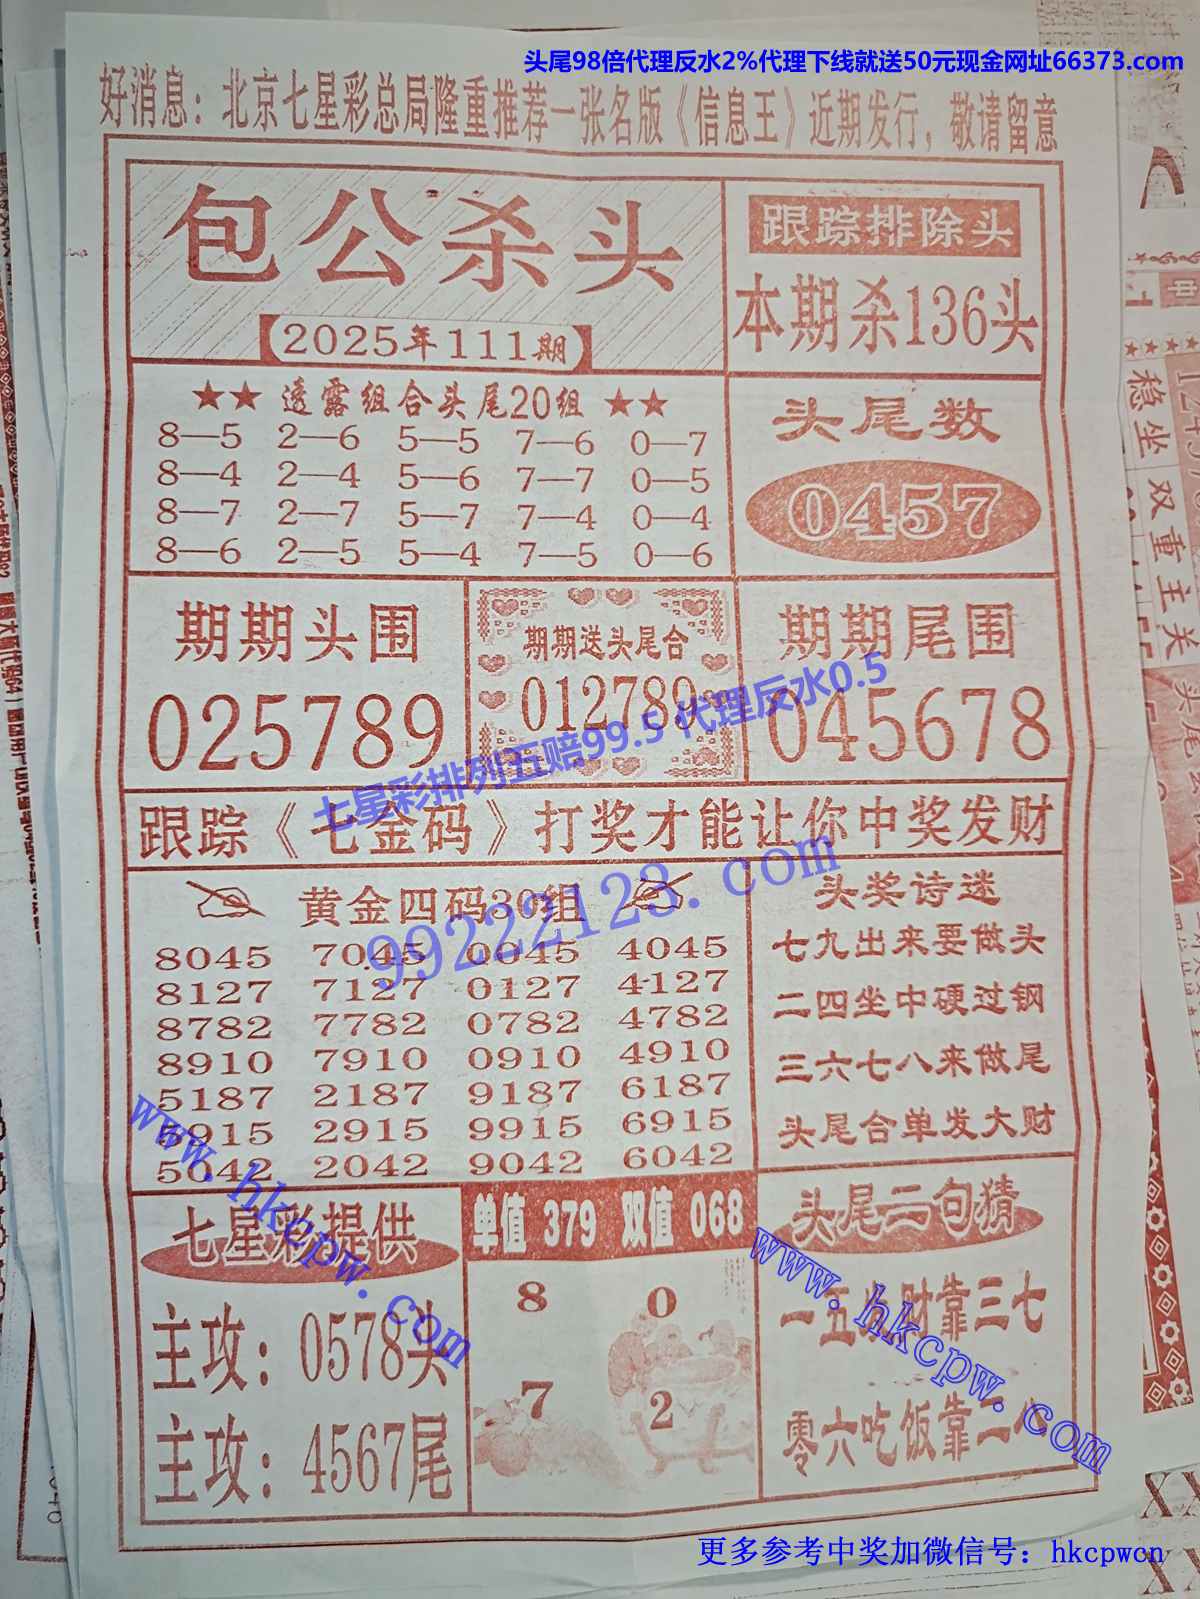 头尾98倍代理反水2%代理下线就送50元现金网址66373.com
好消息：北京七星彩总局隆重推荐一张名版《信息王》近期发行，敬请留意
包公杀头
【2025年111期】
跟踪排除头
本期杀136头
★★ 透露组合头尾20组 ★★
8—5 2—6 5—5 7—6 0—7
8—4 2—4 5—6 7—7 0—5
8—7 2—7 5—7 7—4 0—4
8—6 2—5 5—4 7—5 0—6
头尾数
0457
期期头围
025789
期期送头尾合
012789
期期尾围
045678
七星彩排列五赔99.5 代理反水0.5
跟踪《七金码》打奖才能让你中奖发财
99222123.com
黄金四码30组
8045 7045 0045 4045
8127 7127 0127 4127
8782 7782 0782 4782
8910 7910 0910 4910
5187 2187 9187 6187
5915 2915 9915 6915
5042 2042 9042 6042
头奖诗迷
七九出来要做头
二四坐中硬过钢
三六七八来做尾
头尾合单发大财
www.hkcpw.com
七星彩提供
主攻：0578头
主攻：4567尾
单值 379 双值 068
8 0
7 2
头尾二句猜
一五发财靠三七
零六吃饭靠二八
www.hkcpw.com
更多参考中奖加微信号：hkcpwcn
稳坐
双重主关